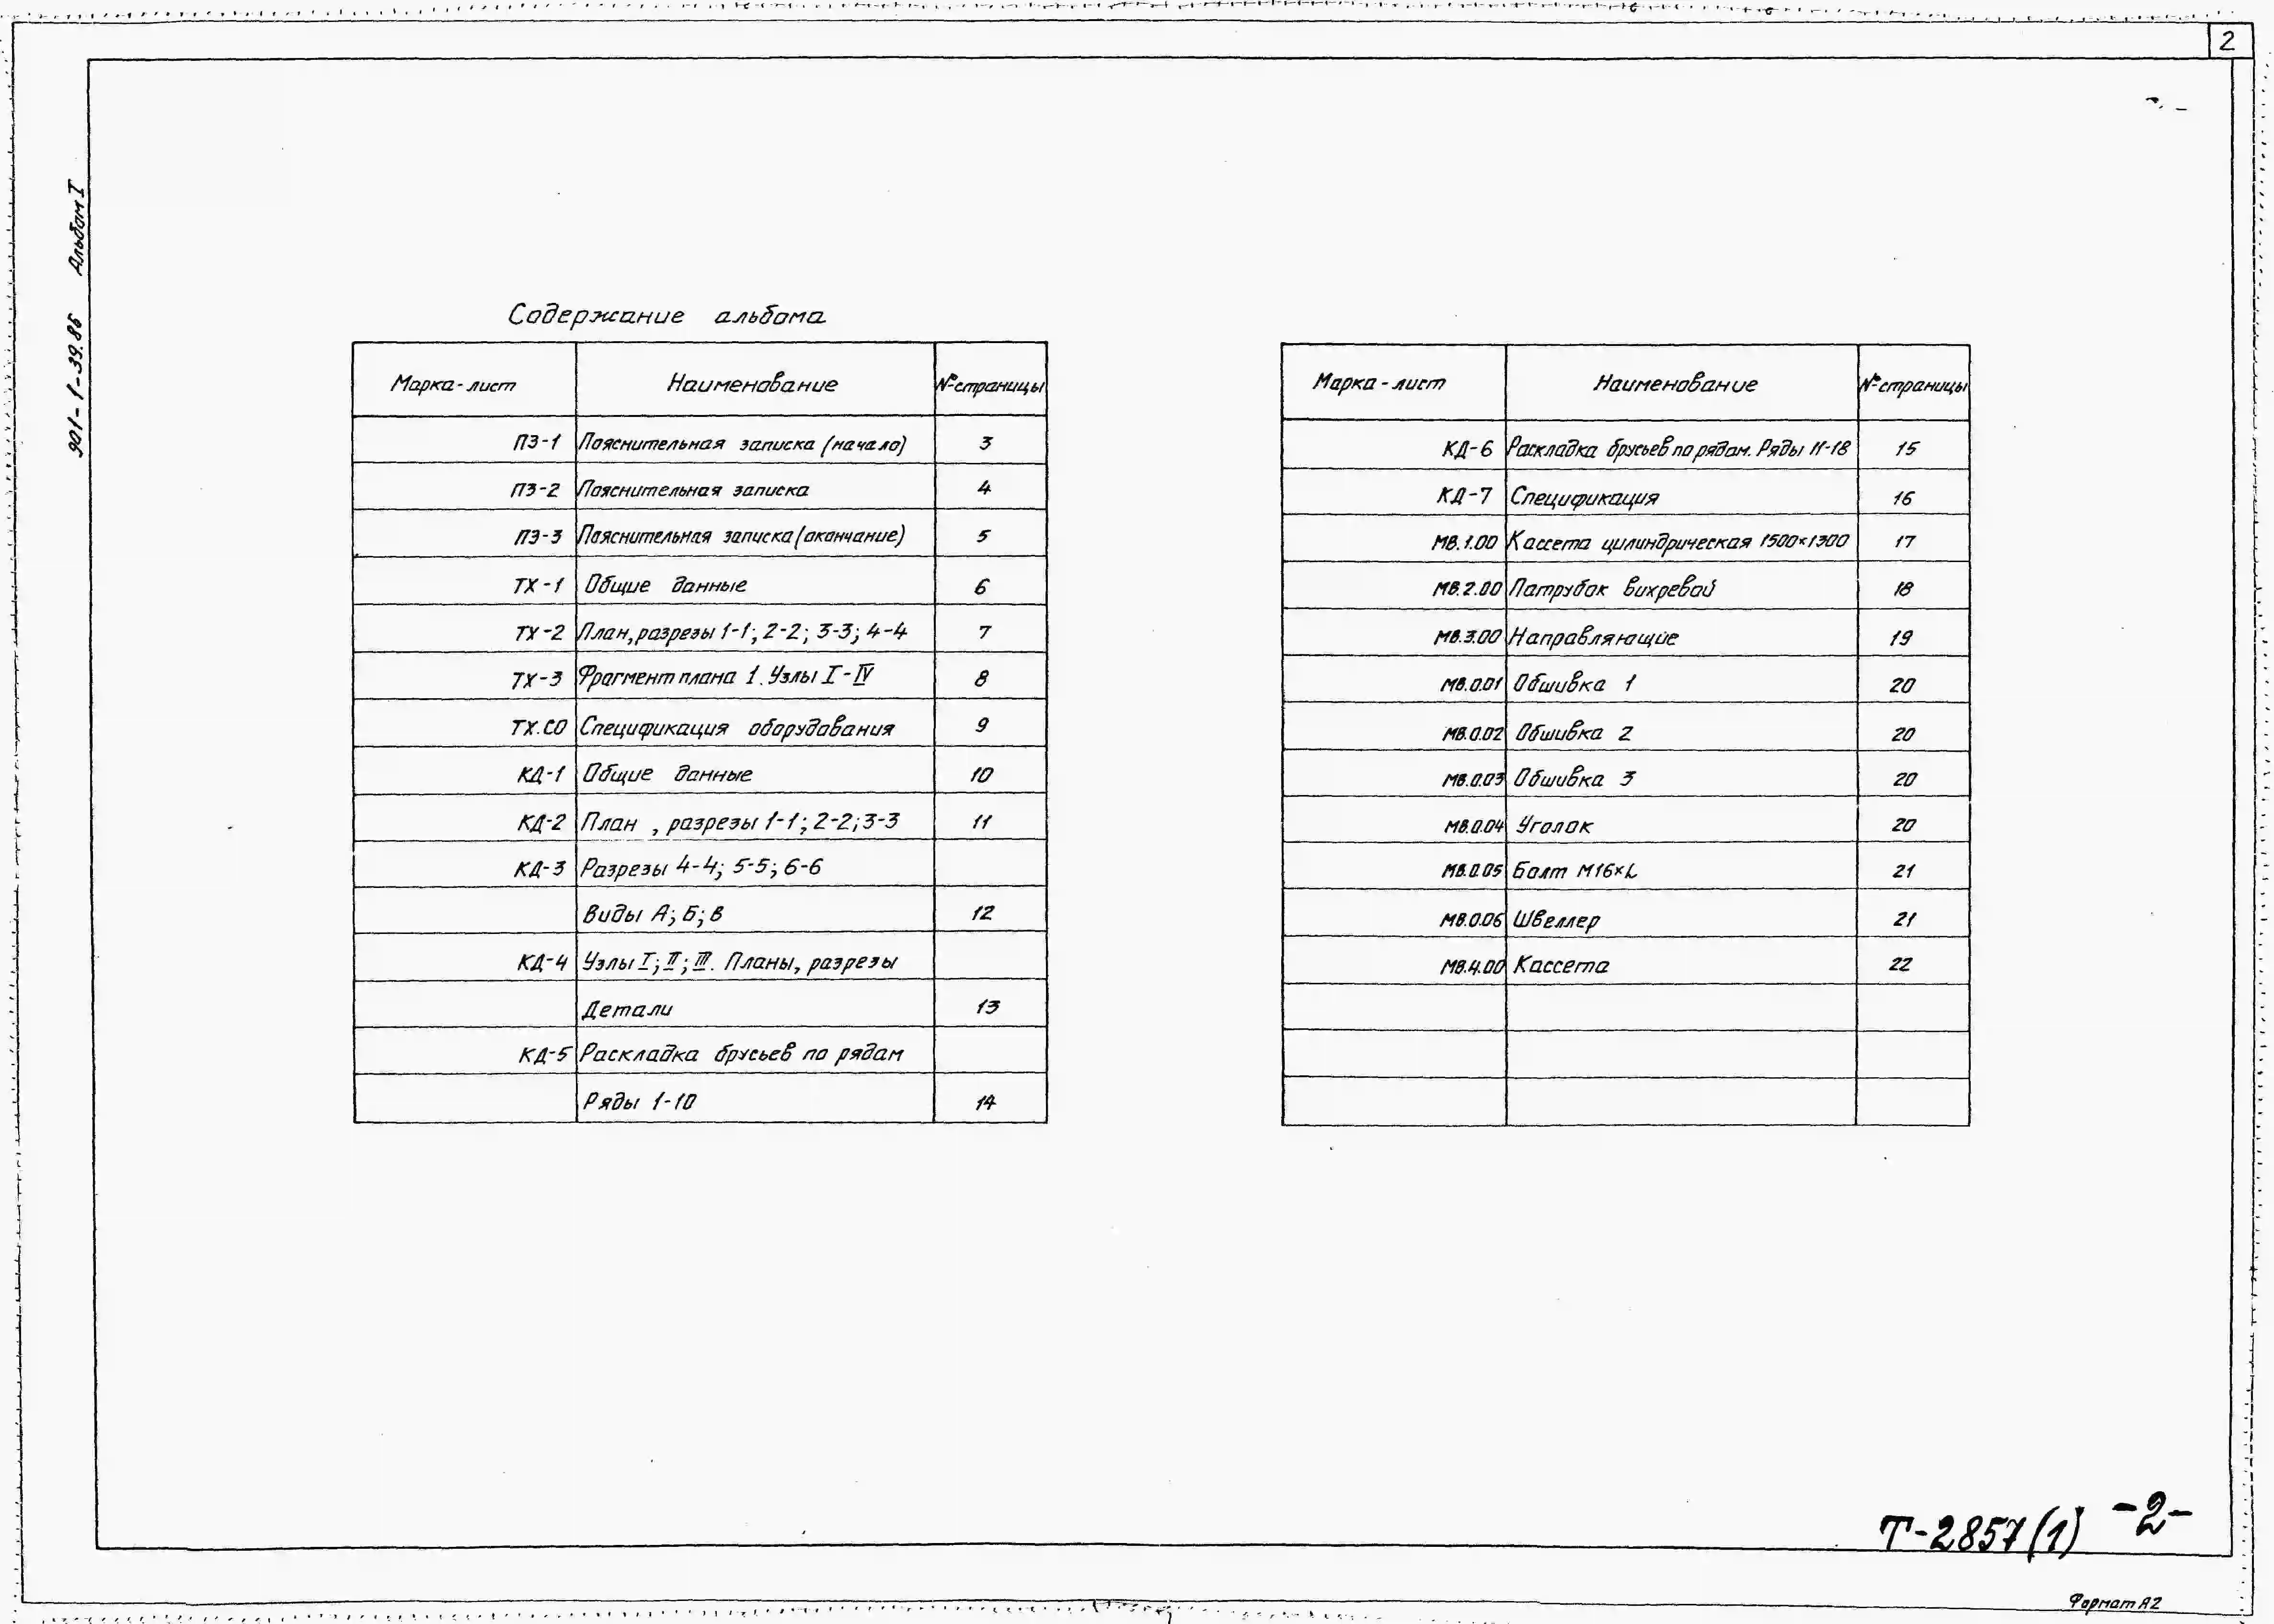 2
901-1-39.86 Альбом I
Содержание альбома
Марка-лист Наименование №страницы
ПЗ-1 Пояснительная записка (начало) 3
ПЗ-2 Пояснительная записка 4
ПЗ-3 Пояснительная записка (окончание) 5
ТХ-1 Общие данные 6
ТХ-2 План, разрезы 1-1; 2-2; 3-3; 4-4 7
ТХ-3 Фрагмент плана 1. Узлы I-IV 8
ТХ.СО Спецификация оборудования 9
КД-1 Общие данные 10
КД-2 План , разрезы 1-1; 2-2; 3-3 11
КД-3 Разрезы 4-4; 5-5; 6-6
Виды А; Б; В 12
КД-4 Узлы I; II; III. Планы, разрезы
Детали 13
КД-5 Раскладка брусьев по рядам
Ряды 1-10 14
Марка-лист Наименование №страницы
КД-6 Раскладка брусьев по рядам. Ряды 11-18 15
КД-7 Спецификация 16
МВ.1.00 Кассета цилиндрическая 1500×1300 17
МВ.2.00 Патрубок вихревой 18
МВ.3.00 Направляющие 19
МВ.0.01 Обшивка 1 20
МВ.0.02 Обшивка 2 20
МВ.0.03 Обшивка 3 20
МВ.0.04 Уголок 20
МВ.0.05 Болт М16×L 21
МВ.0.06 Швеллер 21
МВ.4.00 Кассета 22
Т-2857(1) -2-
Формат А2